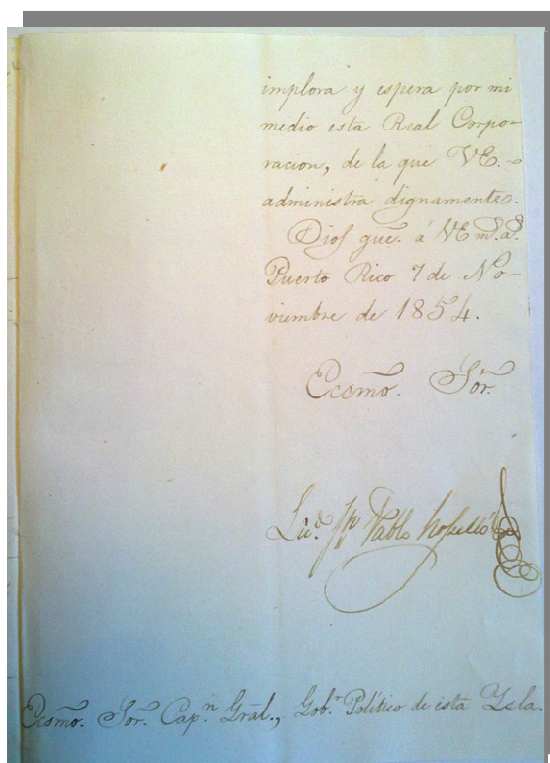 implora y espera por mi
medio esta Real Corpo-
racion, de la que VE.
administra dignamente.
Dios gue. á VE ms. as.
Puerto Rico 7 de No-
viembre de 1854.
Ecsmo. Sór.
Lic.º Pablo
Ecsmo. Sór. Cap.n Grâl., Gob.r Político de esta Ysla.